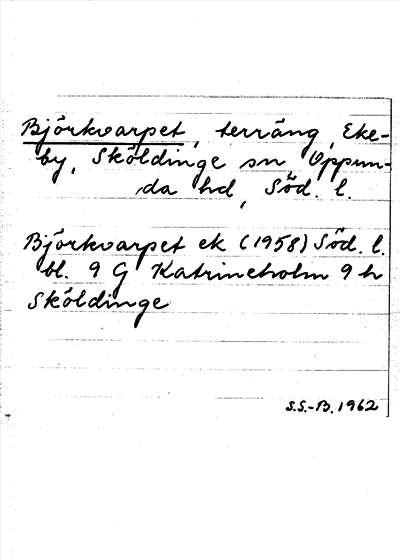 Björkvarpet, terräng, Eke-
by, Sköldinge sn Oppun-
da hd, Söd. l.
Björkvarpet ek (1958) Söd. l.
bl. 9 G Katrineholm 9 h
Sköldinge
S.S.-B. 1962